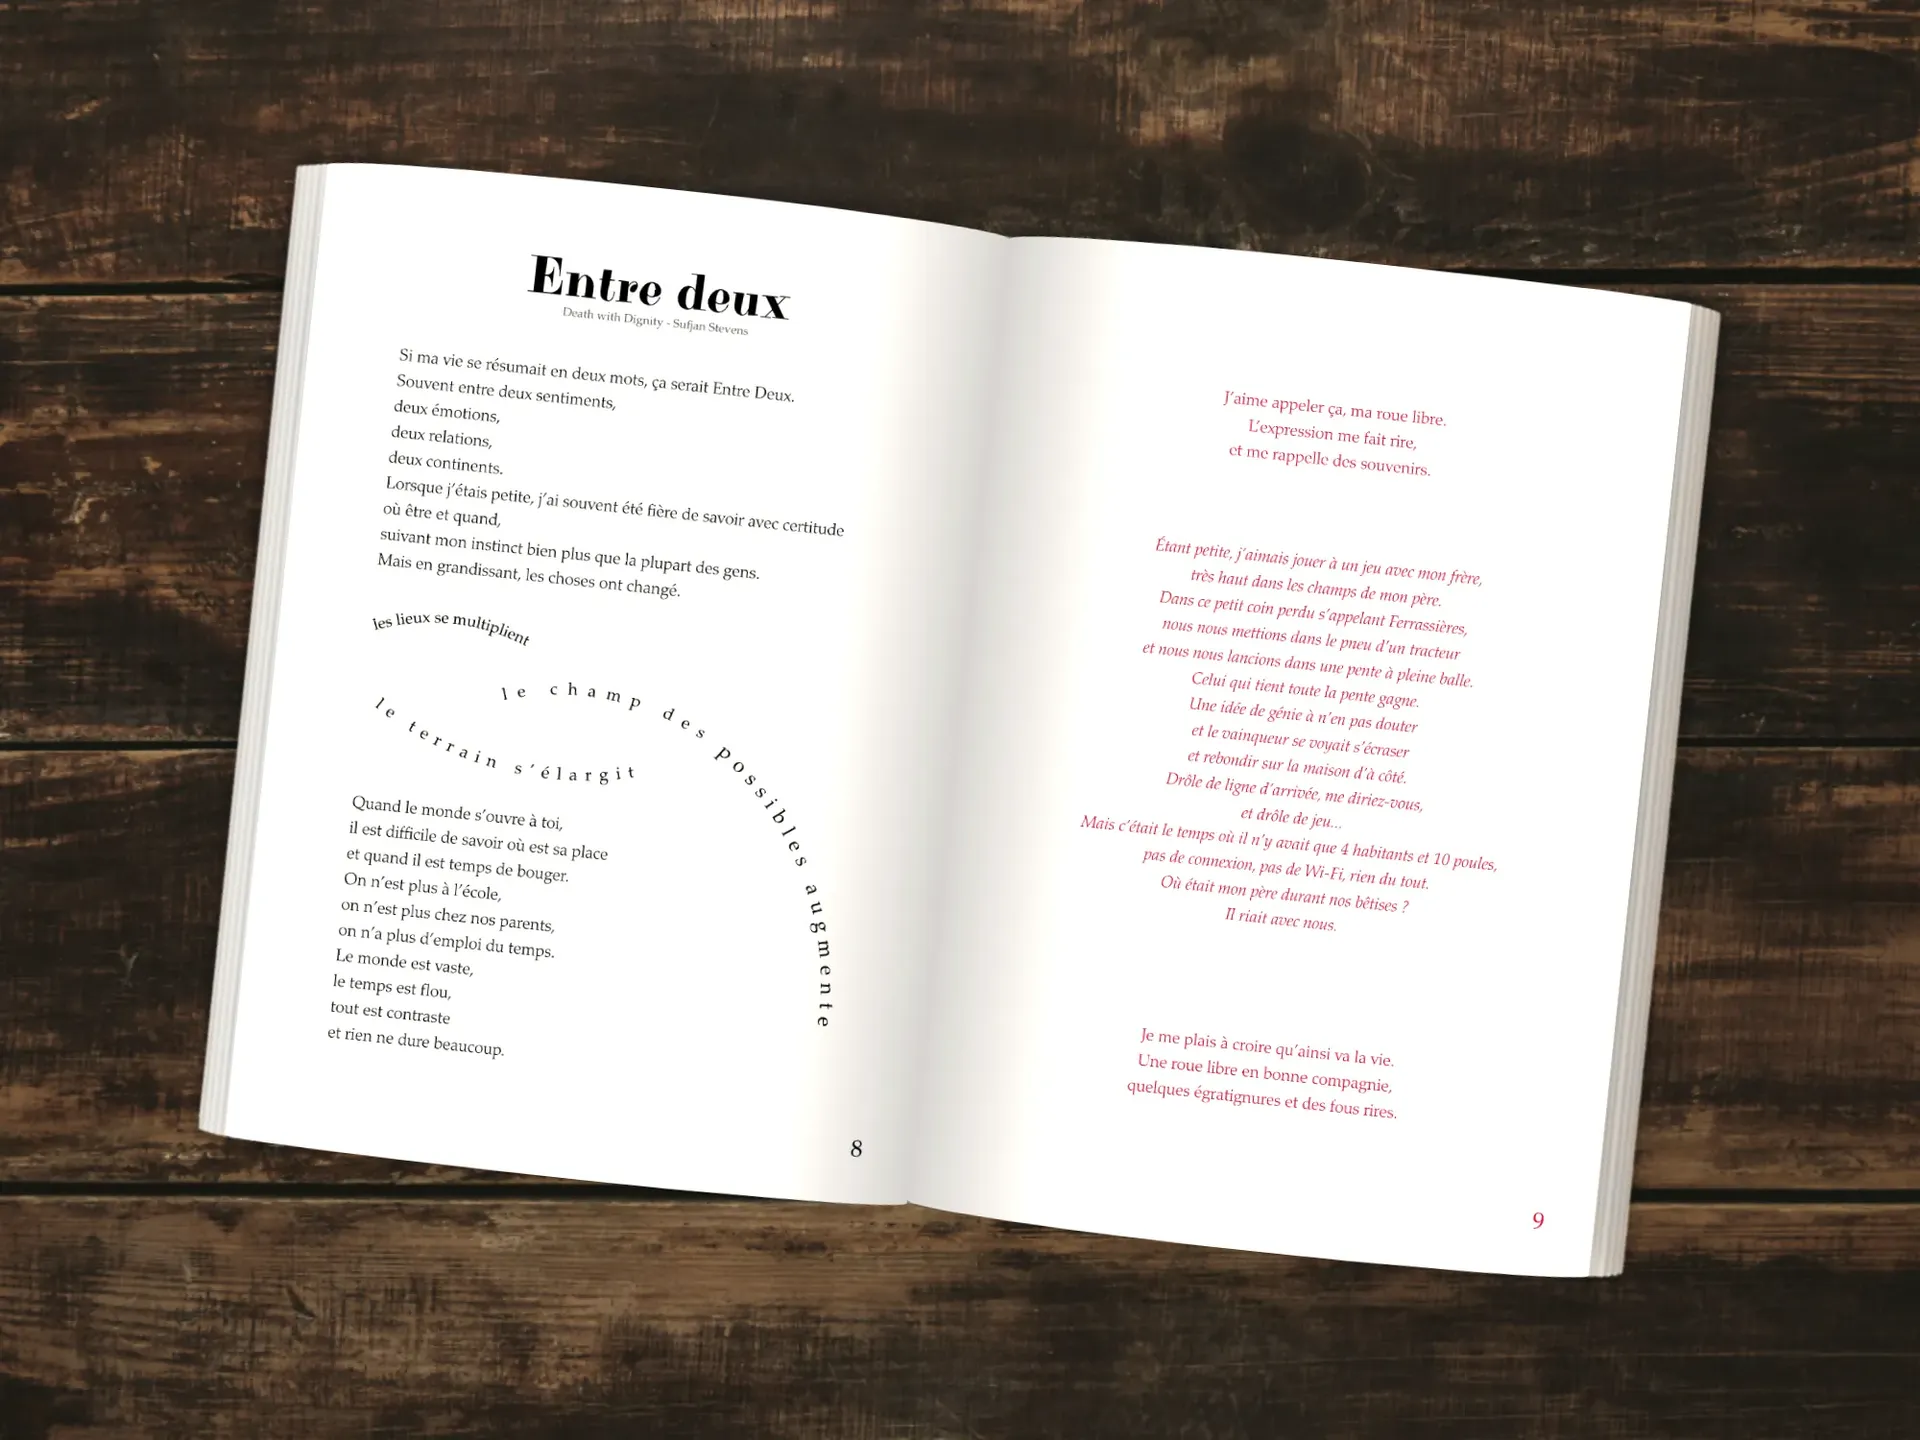 Entre deux
Death with Dignity - Sufjan Stevens
Si ma vie se résumait en deux mots, ça serait Entre Deux.
Souvent entre deux sentiments,
deux émotions,
deux relations,
deux continents.
Lorsque j'étais petite, j'ai souvent été fière de savoir avec certitude
où être et quand,
suivant mon instinct bien plus que la plupart des gens.
Mais en grandissant, les choses ont changé.
les lieux se multiplient
le champ des possibles augmente
le terrain s'élargit
Quand le monde s'ouvre à toi,
il est difficile de savoir où est sa place
et quand il est temps de bouger.
On n'est plus à l'école,
on n'est plus chez nos parents,
on n'a plus d'emploi du temps.
Le monde est vaste,
le temps est flou,
tout est contraste
et rien ne dure beaucoup.
8
J'aime appeler ça, ma roue libre.
L'expression me fait rire,
et me rappelle des souvenirs.
Étant petite, j'aimais jouer à un jeu avec mon frère,
très haut dans les champs de mon père.
Dans ce petit coin perdu s'appelant Ferrassières,
nous nous mettions dans le pneu d'un tracteur
et nous nous lancions dans une pente à pleine balle.
Celui qui tient toute la pente gagne.
Une idée de génie à n'en pas douter
et le vainqueur se voyait s'écraser
et rebondir sur la maison d'à côté.
Drôle de ligne d'arrivée, me diriez-vous,
et drôle de jeu...
Mais c'était le temps où il n'y avait que 4 habitants et 10 poules,
pas de connexion, pas de Wi-Fi, rien du tout.
Où était mon père durant nos bêtises ?
Il riait avec nous.
Je me plais à croire qu'ainsi va la vie.
Une roue libre en bonne compagnie,
quelques égratignures et des fous rires.
9